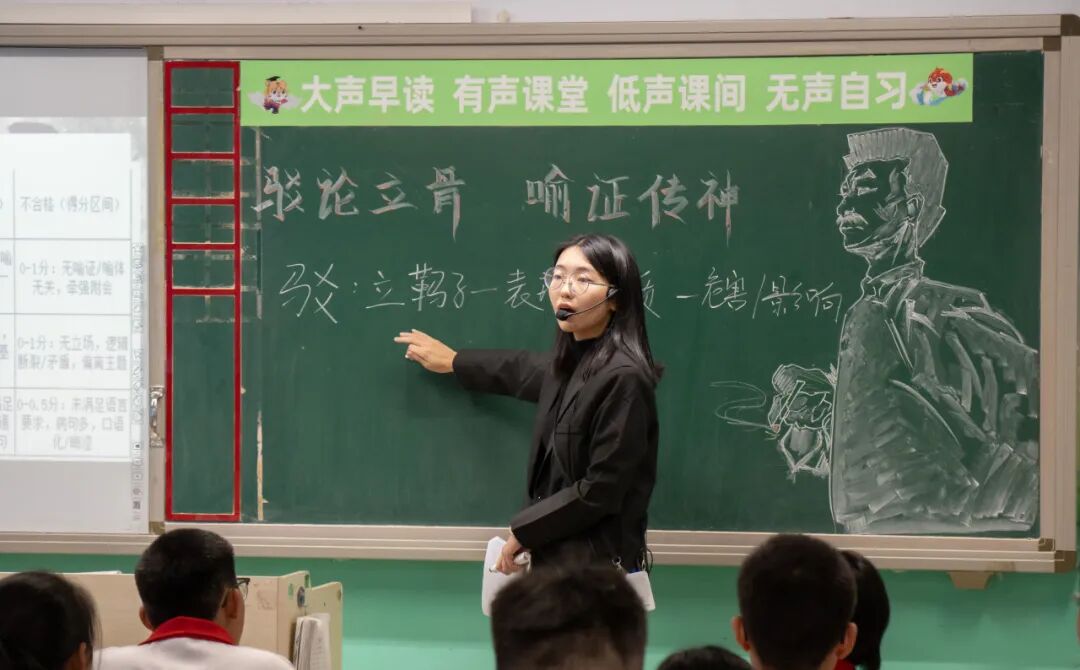 大声早读 有声课堂 低声课间 无声自习
驳论立骨 喻证传神
驳：立靶子—表 质—危害/影响
不合格（得分区间）
0-1分：无喻证/喻体
无关，牵强附会
0-1分：无立场，逻辑
断裂/矛盾，偏离主题
0-0.5分：未满足语言
要求，病句多，口语